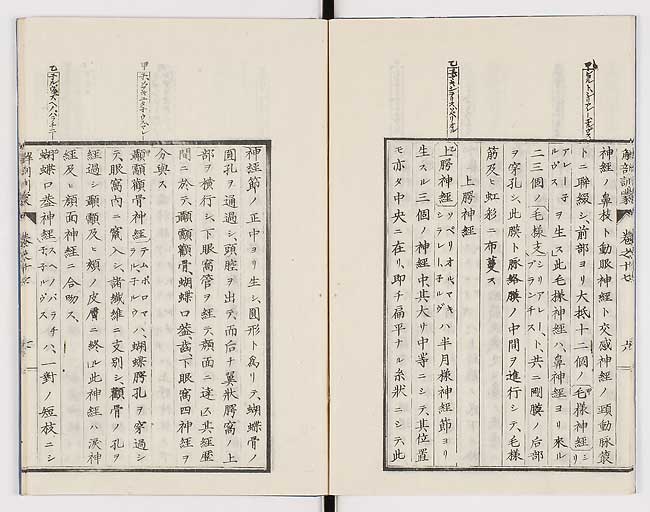 解剖訓蒙 卷之十七 六
神經ノ鼻枝ト動眼神經ト交感神經ノ頸動脉叢
トニ聯綴シ前部ヨリ大抵十二個ノ毛樣神經シリ
アレーチルヴスヲ生ス此毛樣神經ハ鼻神經ヨリ來ル
二三個ノ毛樣支シリアレーブランチスト共ニ剛膜ノ后部
ヲ穿孔シ此膜ト脉絡膜ノ中間ヲ進行シテ毛樣
筋及ヒ虹彩ニ布蔓ス
上腭神經
上腭神經ハ半月樣神經節ヨリ
生スル三個ノ神經中其大サ中等ニシテ其位置
モ亦タ中央ニ在リ即チ偏平ナル糸狀ニシテ此
神經節ノ正中ヨリ生シ圓形ト爲リテ蝴蝶骨ノ
圓孔ヲ通過シ頭腔ヲ出テ而后チ翼狀腭窩ノ上
部ヲ橫行シ下眼窩管ヲ經テ顏面ニ達ス其經歷
間ニ於テ顳顬顴骨、蝴蝶口蓋、齒、下眼窩四神經ヲ
分與ス
顳顬顴骨神經テムポロマラルチルヴハ蝴蝶腭孔ヲ穿過シ
テ眼窩內ニ竄入シ諸纖維ニ支別シ顴骨ノ孔ヲ
經過シ顳顬及ヒ頰ノ皮膚ニ終ル此神經ハ淚神
經及ヒ顏面神經ニ合吻ス
蝴蝶口蓋神經スヘノパラチチルヴスハ一對ノ短枝ニシ
解剖訓蒙 卷之十七 七